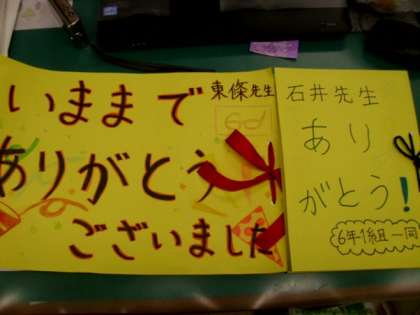 いままで
東條先生
ありがとう
ございました
石井先生
あり
がとう!
6年1組一同